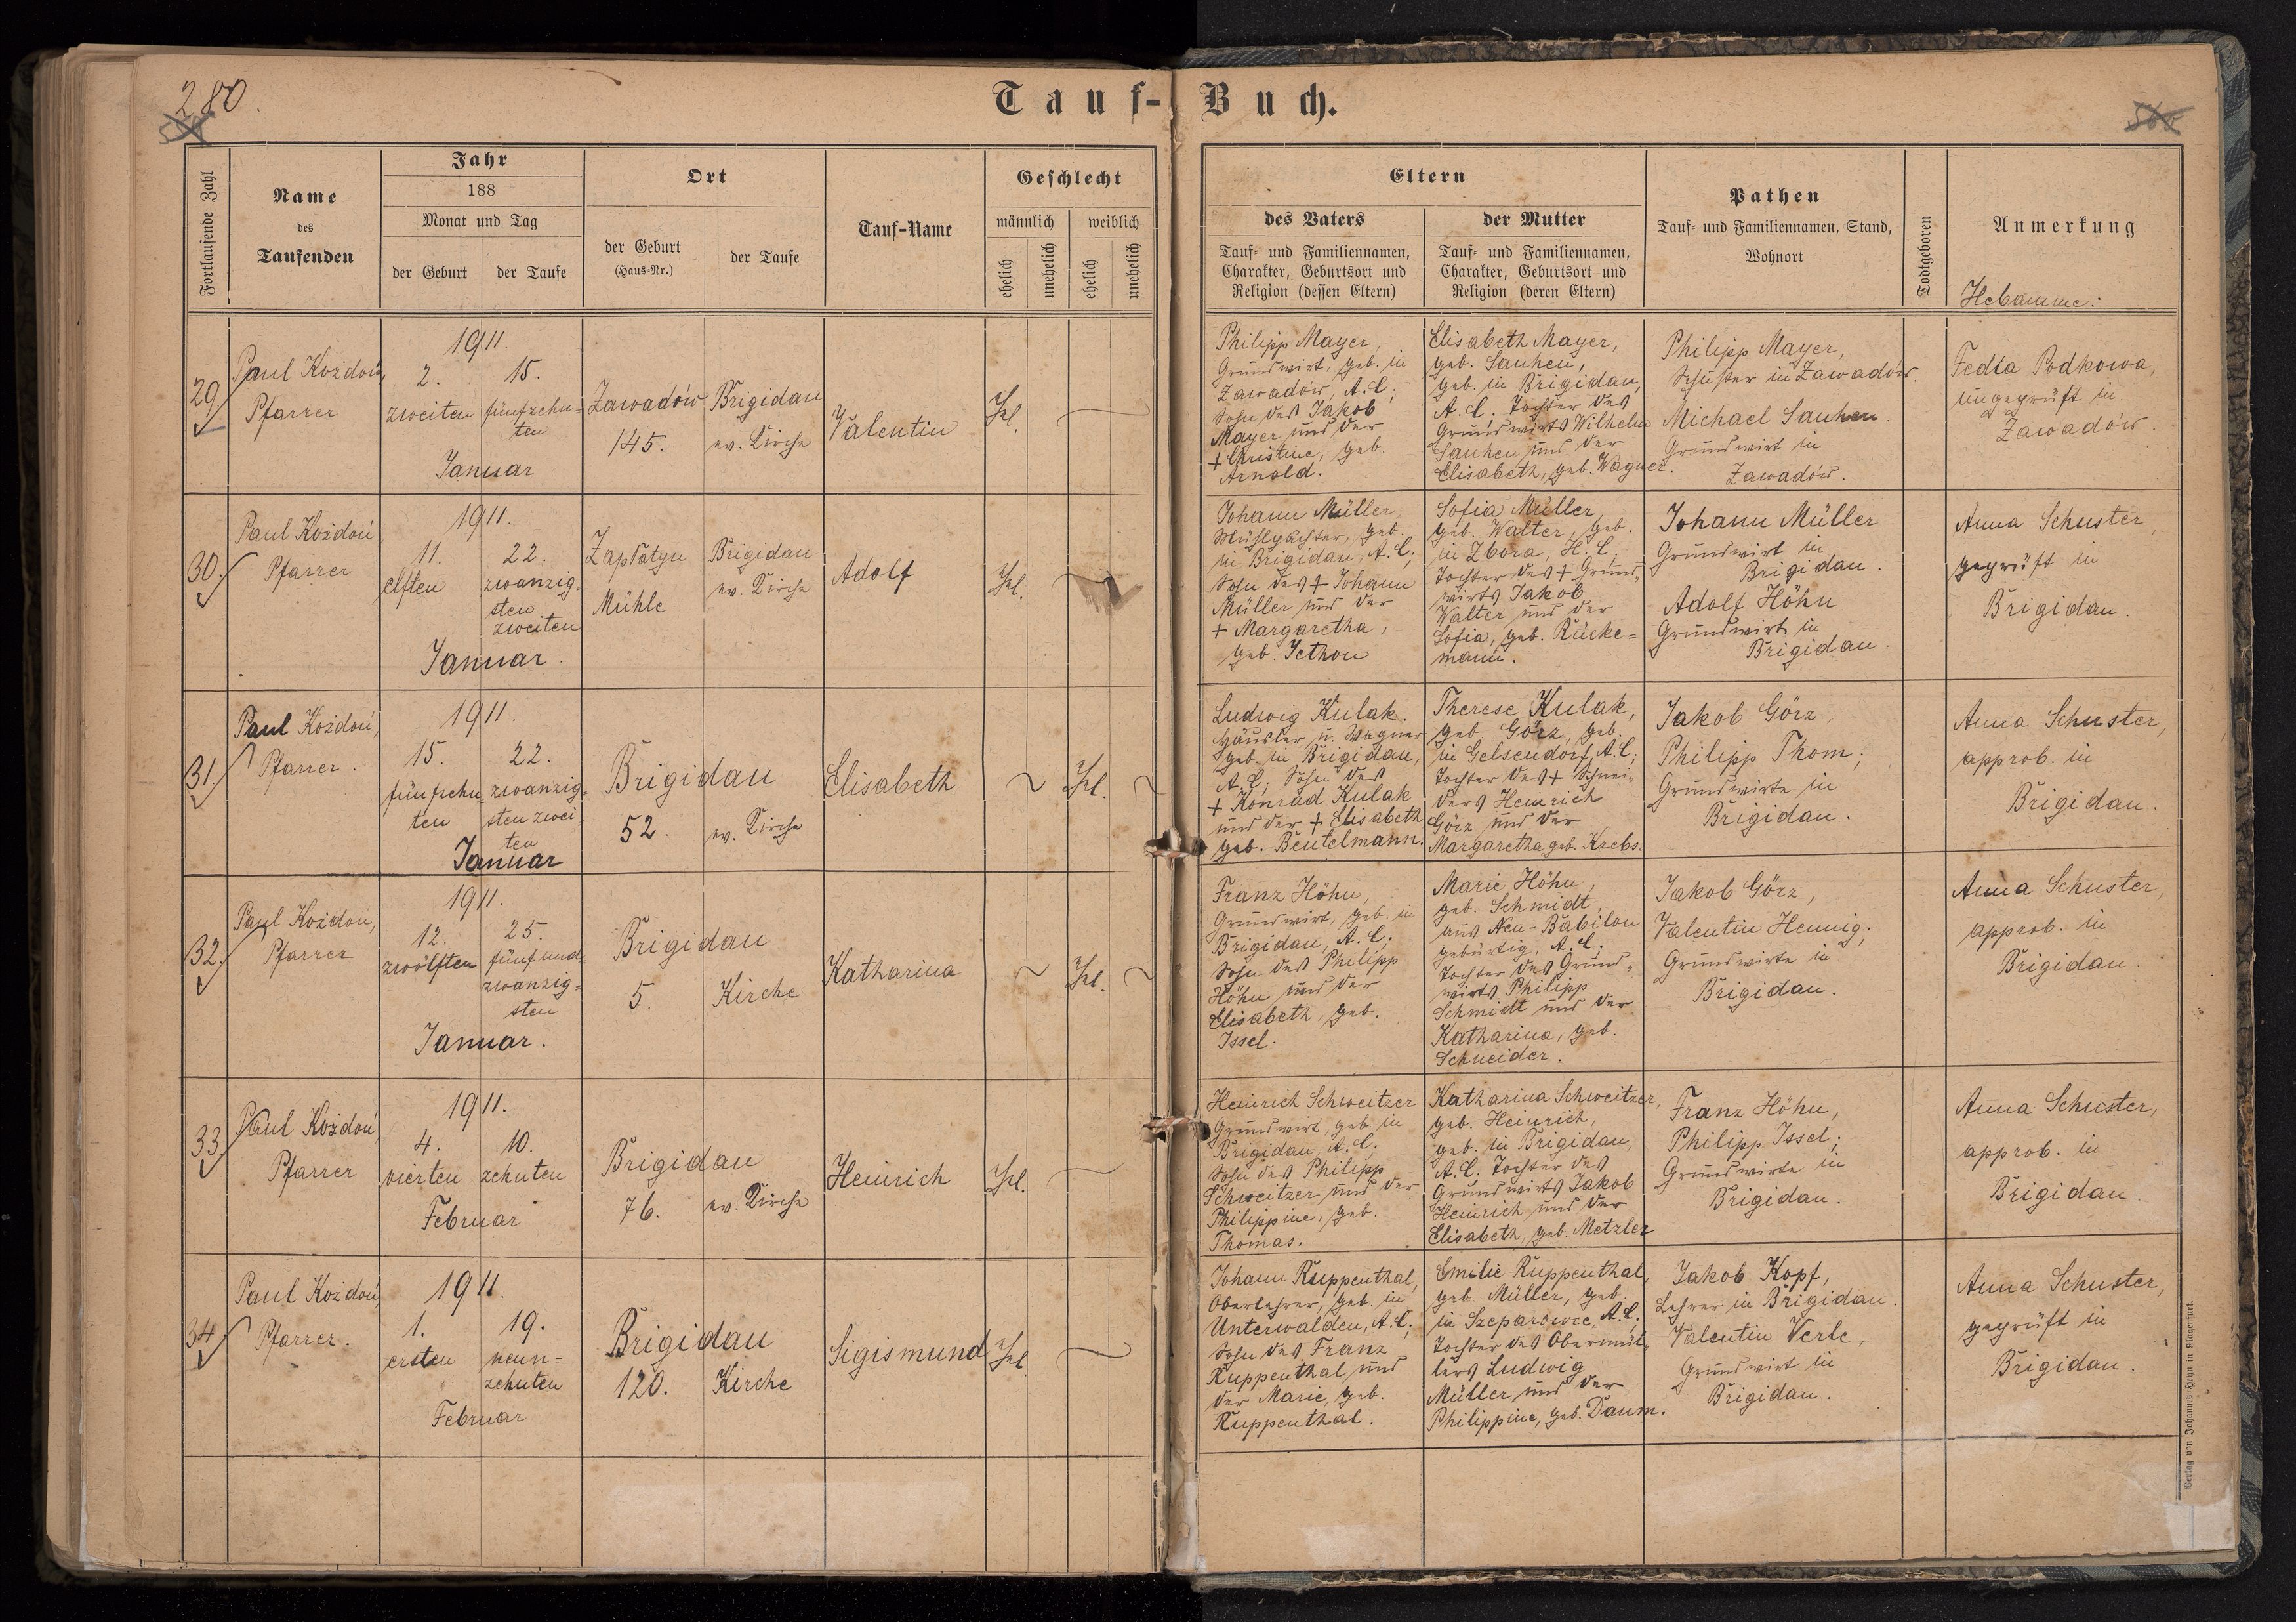 280.
Tauf-Buch.
Fortlaufende Zahl
Name
des
Taufenden
Jahr
188
Monat und Tag
der Geburt
der Taufe
Ort
der Geburt
(Haus-Nr.)
der Taufe
Tauf-Name
Geschlecht
männlich
weiblich
ehelich
unehelich
ehelich
unehelich
Eltern
des Vaters
Tauf- und Familiennamen,
Charakter, Geburtsort und
Religion (dessen Eltern)
der Mutter
Tauf- und Familiennamen,
Charakter, Geburtsort und
Religion (deren Eltern)
Pathen
Tauf- und Familiennamen, Stand,
Wohnort
Todtgeboren
Anmerkung
Hebamme:
29
Paul Kożdoń,
Pfarrer
1911.
2.
zweiten
15.
fünfzehn-
ten
Januar
Zawadów
145.
Brigidau
ev. Kirche
Valentin
Ehl.
Philipp Mayer,
Grundwirt, geb. in
Zawadów, A.C.;
Sohn des Jakob
Mayer und der
+ Christine, geb.
Arnold.
Elisabeth Mayer,
geb. Sauhen,
geb. in Brigidau,
A.C. Tochter des
Grundwirts Wilhelm
Sauhen und der
Elisabeth, geb. Wagner.
Philipp Mayer,
Schuster in Zawadów.
Michael Sauhen
Grundwirt in
Zawadów.
Fedia Podkowa,
ungeprüft in
Zawadów.
30.
Paul Kożdoń
Pfarrer
1911.
11.
elften
22.
zwanzig-
sten
zweiten
Januar.
Zaplatyn
Mühle
Brigidau
ev. Kirche
Adolf
Ehl.
Johann Müller,
Mühlpächter, geb.
in Brigidau, A.C.;
Sohn des + Johann
Müller und der
+ Margaretha,
geb. Jethon
Sofia Müller,
geb. Walter, geb.
in Zbora, H.C.
Tochter des + Grund-
wirts Jakob
Walter und der
Sofia, geb. Rücke-
mann.
Johann Müller
Grundwirt in
Brigidau.
Adolf Höhn
Grundwirt in
Brigidau.
Anna Schuster,
geprüft in
Brigidau.
31.
Paul Kożdoń,
Pfarrer.
1911.
15.
fünfzehn-
ten
22.
zwanzig-
sten zwei-
ten
Januar
Brigidau
52.
ev. Kirche
Elisabeth
Ehl.
Ludwig Kulak.
Häusler u. Wagner
geb. in Brigidau,
A.C; Sohn des
+ Konrad Kulak
und der + Elisabeth
geb. Beutelmann.
Therese Kulak,
geb. Görz, geb.
in Gelsendorf, A.C;
Tochter des + Schnei-
ders Heinrich
Görz und der
Margaretha geb. Krebs.
Jakob Görz,
Philipp Thom;
Grundwirte in
Brigidau.
Anna Schuster,
approb. in
Brigidau.
32.
Paul Kożdoń,
Pfarrer
1911.
12.
zwölften
25.
fünfund-
zwanzig-
sten
Januar.
Brigidau
5.
Kirche
Katharina
Ehl.
Franz Höhn,
Grundwirt, geb. in
Brigidau, A.C;
Sohn des Philipp
Höhn und der
Elisabeth, geb.
Issel.
Marie Höhn,
geb. Schmidt,
aus Neu-Babilon
gebürtig, A.C.
Tochter des Grund-
wirts Philipp
Schmidt und der
Katharina, geb.
Schneider.
Jakob Görz,
Valentin Hennig;
Grundwirte in
Brigidau.
Anna Schuster,
approb. in
Brigidau.
33.
Paul Kożdoń,
Pfarrer
1911.
4.
vierten
10.
zehnten
Februar
Brigidau
76.
ev. Kirche
Heinrich
Ehl.
Heinrich Schweitzer
Grundwirt, geb. in
Brigidau, A.C;
Sohn des Philipp
Schweitzer und der
Philippine, geb.
Thomas.
Katharina Schweitzer,
geb. Heinrich,
geb. in Brigidau,
A.C. Tochter des
Grundwirts Jakob
Heinrich und der
Elisabeth, geb. Metzler
Franz Höhn,
Philipp Issel;
Grundwirte in
Brigidau.
Anna Schuster,
approb. in
Brigidau.
34.
Paul Kożdoń,
Pfarrer.
1911.
1.
ersten
19.
neun-
zehnten
Februar
Brigidau
120.
Kirche
Sigismund
Ehl.
Johann Ruppenthal,
Oberlehrer, geb. in
Unterwalden, A.C.,
Sohn des Franz
Ruppenthal und
der Marie, geb.
Ruppenthal.
Emilie Ruppenthal,
geb. Müller, geb.
in Szeparowce, A.C.
Tochter des Obermül-
lers Ludwig
Müller und der
Philippine, geb. Daum.
Jakob Kopf,
Lehrer in Brigidau.
Valentin Verle,
Grundwirt in
Brigidau.
Anna Schuster,
geprüft in
Brigidau.
Verlag von Johannes Heyn in Klagenfurt.